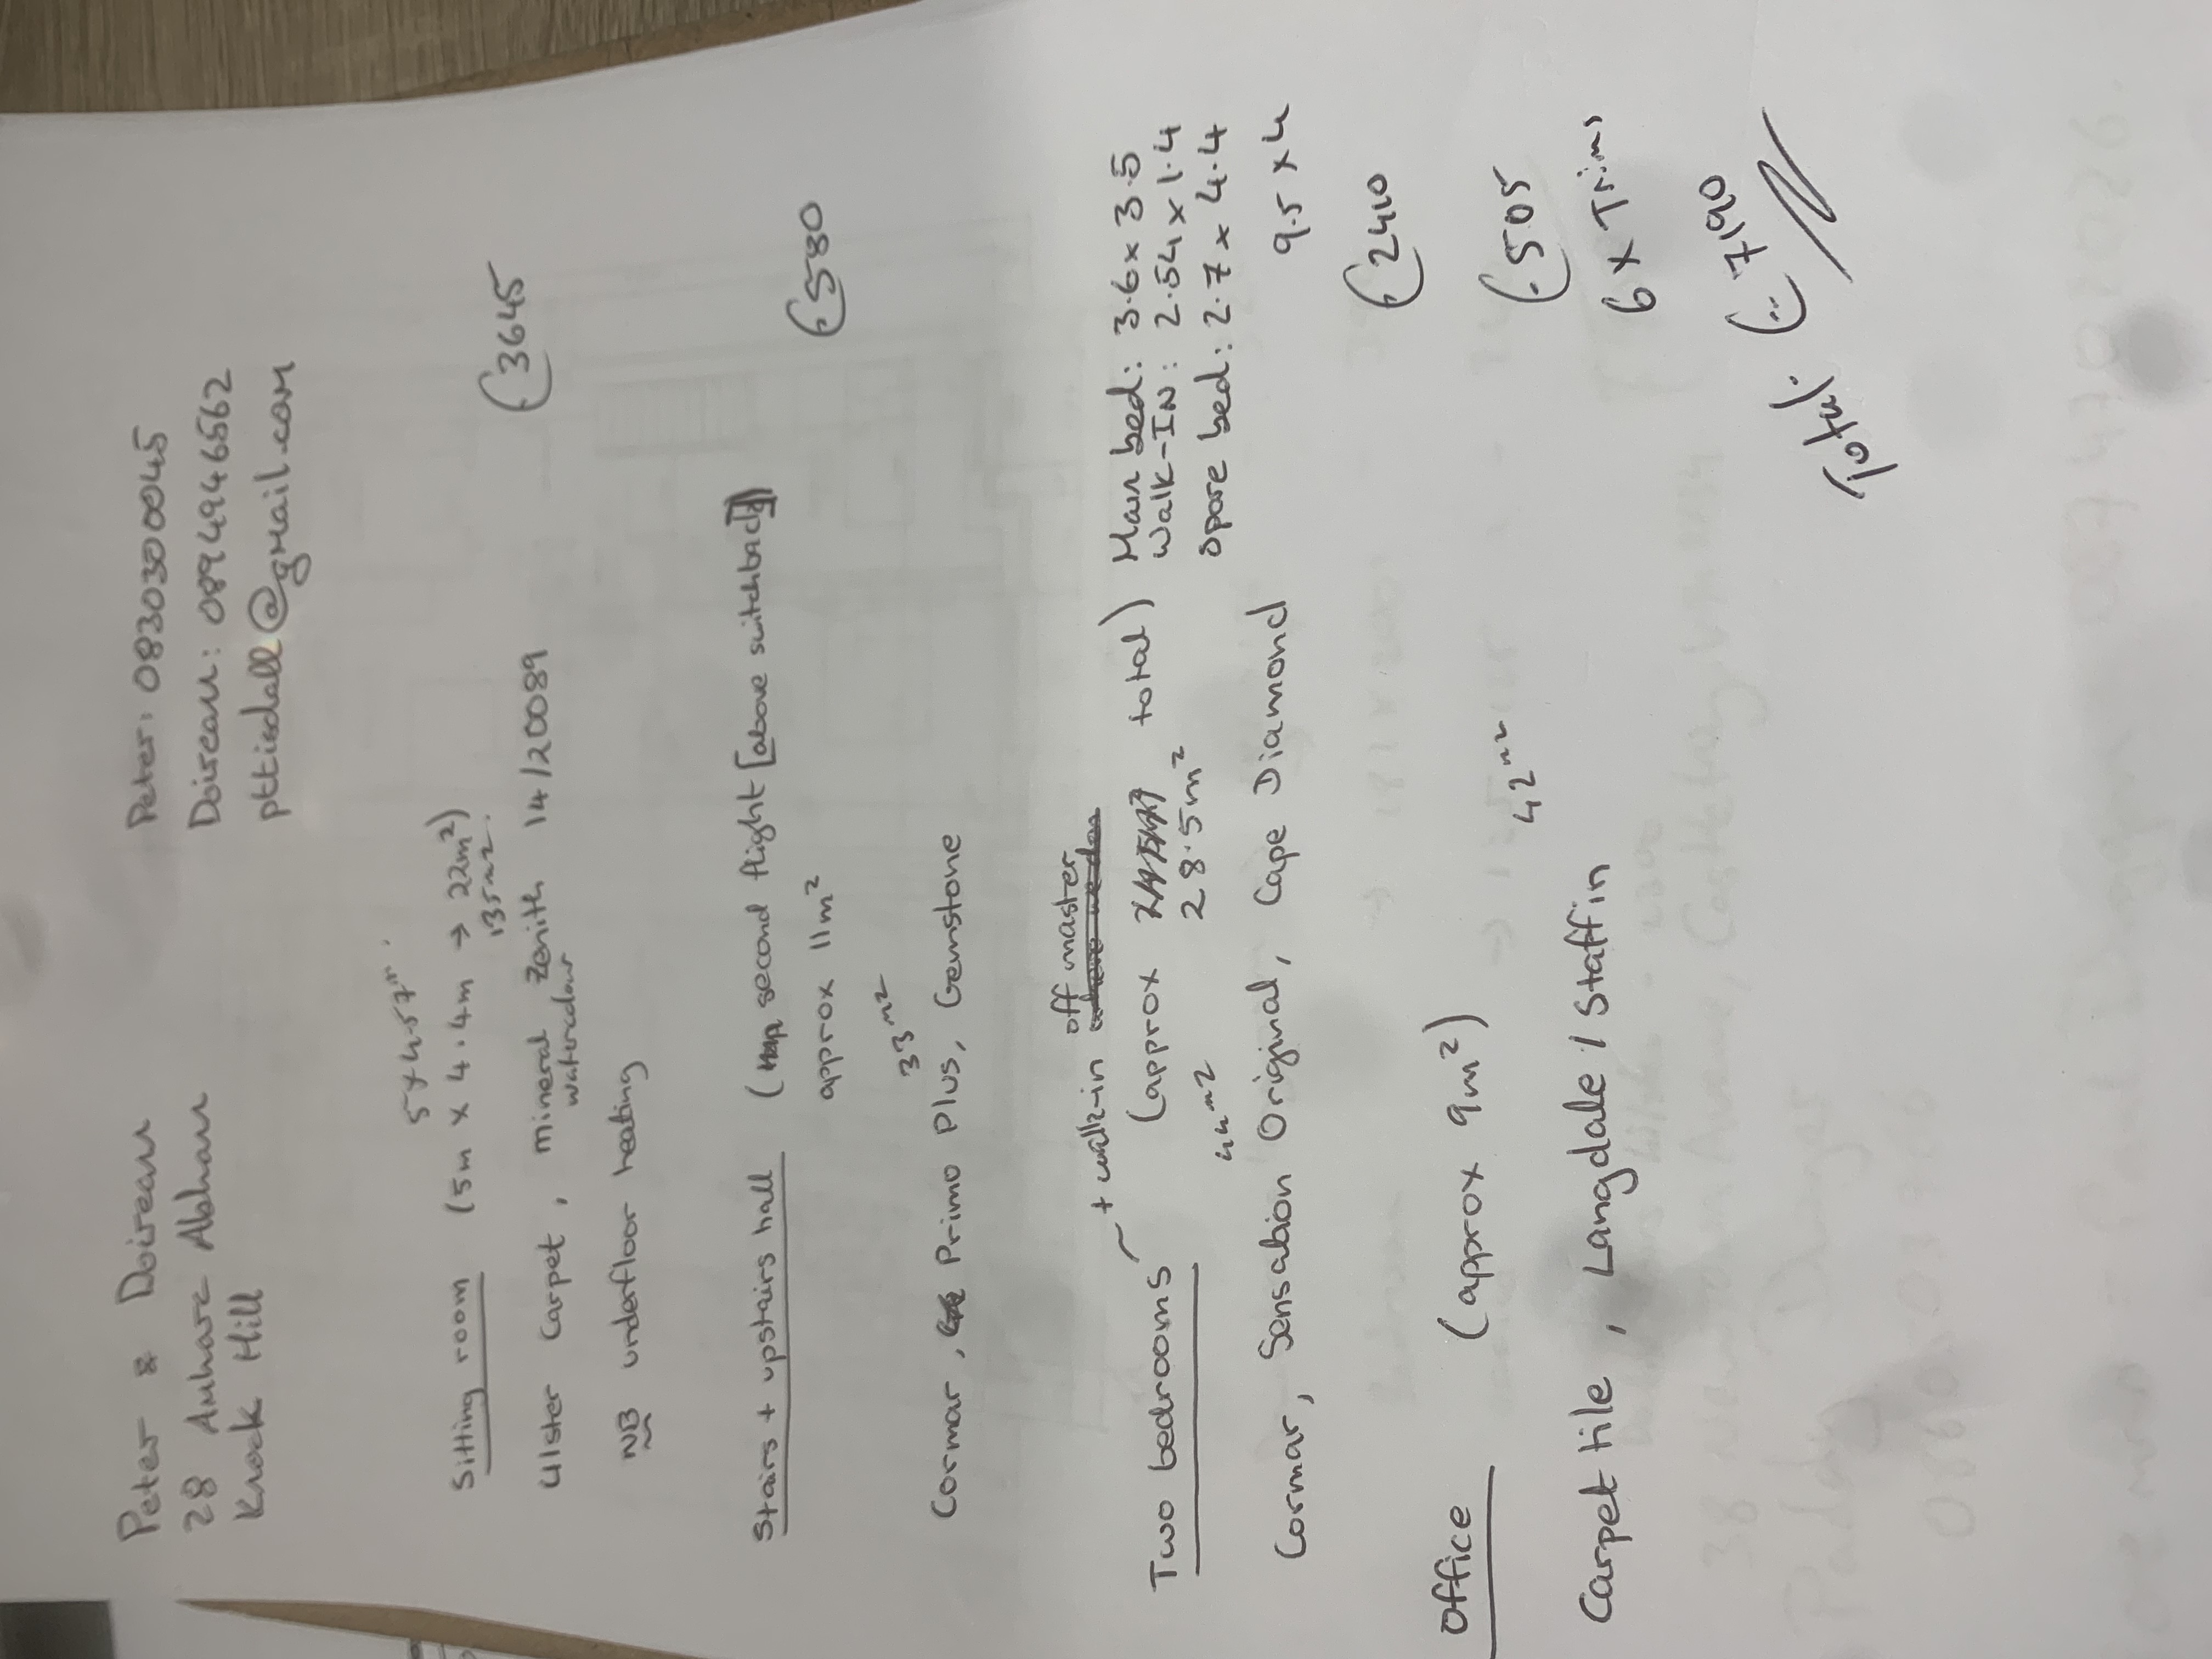 Peter & Doireann
28 Anharc Abhann
Knock Hill
Peter: 0830300045
Doireann: 0894946562
pttisdall@gmail.com
5 x 4.57m.
Sitting room (5m x 4.4m → 22m²)
£35m2.
Ulster Carpet, mineral Zenith 14/20089
watercolour
NB underfloor heating
(3645
Stairs + upstairs hall (second flight [above switchback])
approx 11m²
(580
33m2
Cormar, Primo Plus, Gemstone
Two bedrooms + walk-in off master
(approx total)
28.5m²
44m2
Main bed: 3.6 x 3.5
Walk-IN: 2.54 x 1.4
Spare bed: 2.7 x 4.4
Cormar, Sensation Original, Cape Diamond
9.5 x 4
(2410
Office (approx 9m²)
42m2
(505
Carpet tile, Langdale / Staffin
6 x Trims
Total: (7190